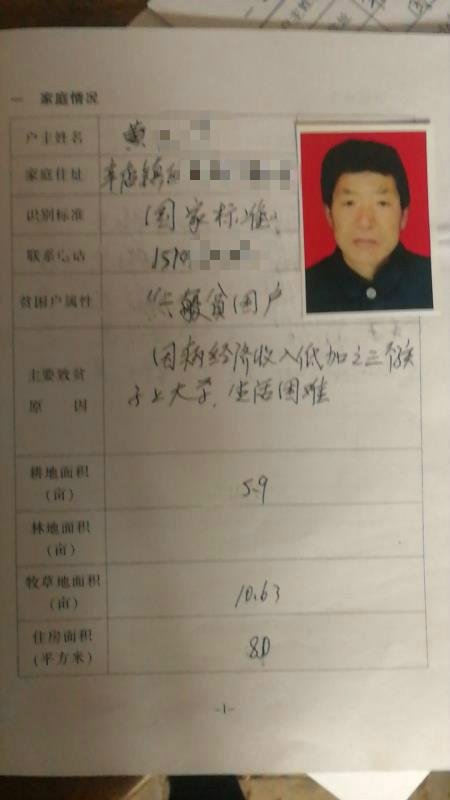 一 家庭情况
户主姓名 黄
家庭住址
识别标准 国家标准
联系电话 151
贫困户属性 一般贫困户
主要致贫 因病经济收入低加之三个孩
原 因 子上大学,生活困难
耕地面积
(亩) 5.9
林地面积
(亩)
牧草地面积
(亩) 10.63
住房面积
(平方米) 80
-1-